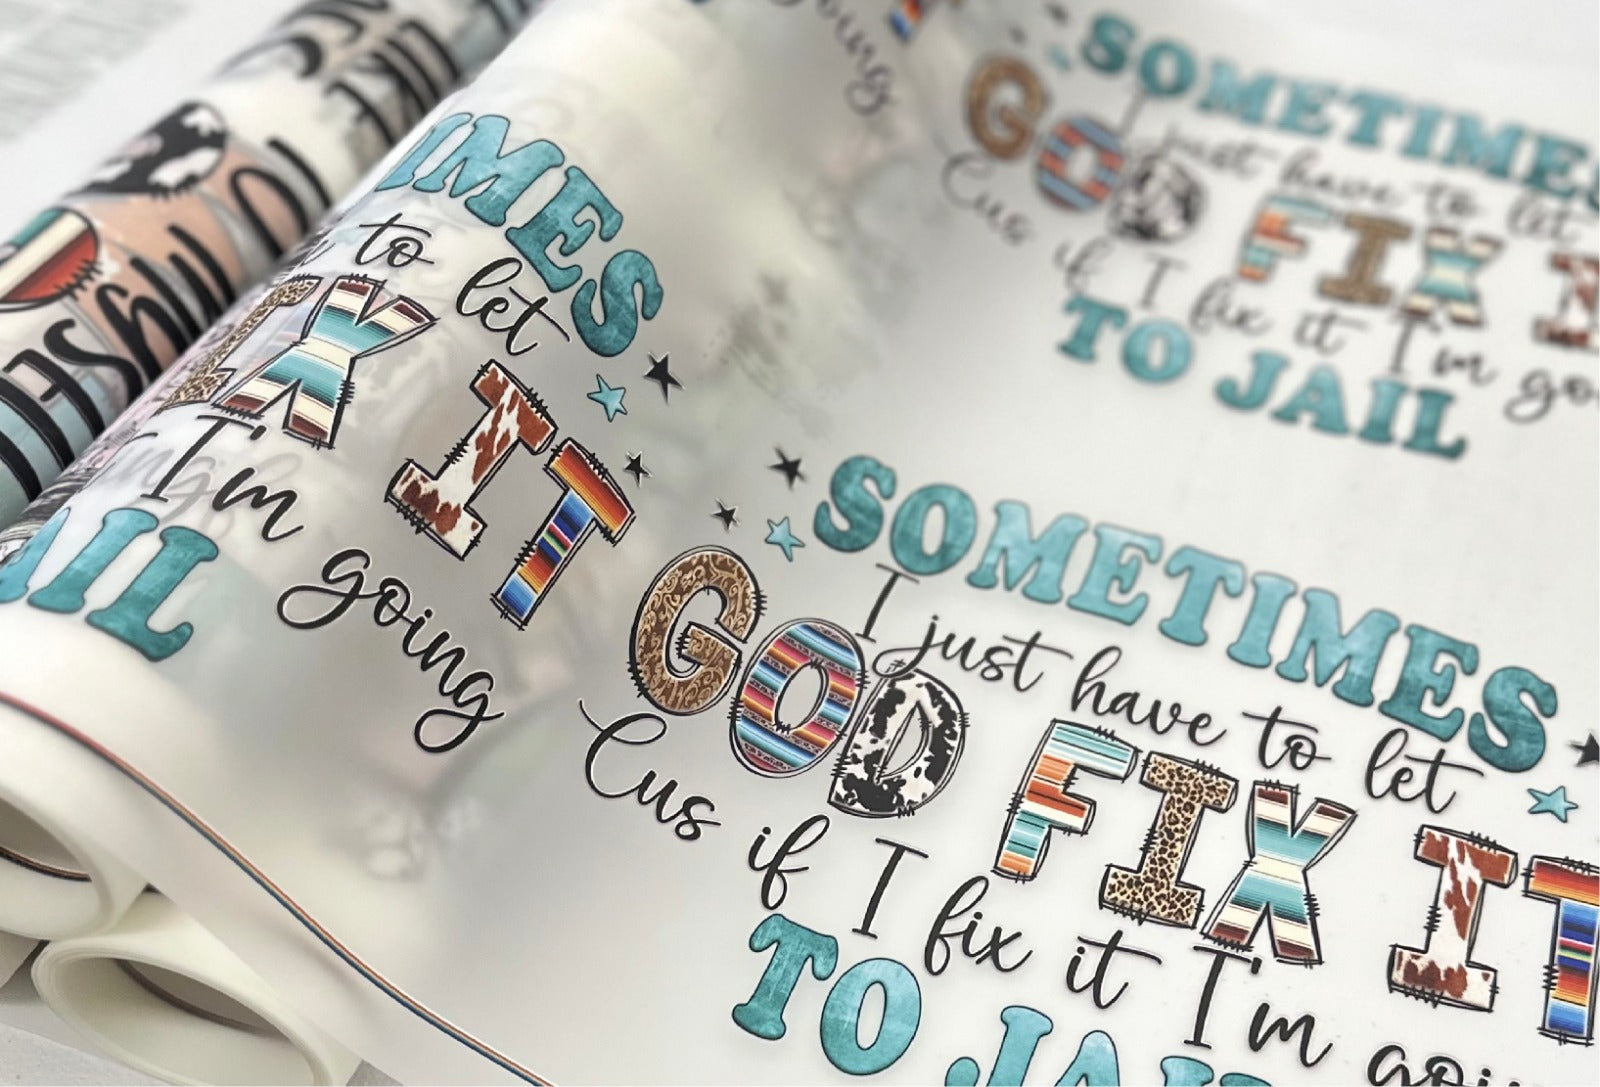 IMES
to let
IX IT
I'm going
AIL
going
IT
SOMETIMES
I just have to let
GOD FIX I
Cus if I fix it I'm go
TO JAIL
SOMETIMES
I just have to let
GOD FIX IT
Cus if I fix it I'm goi
TO JAI